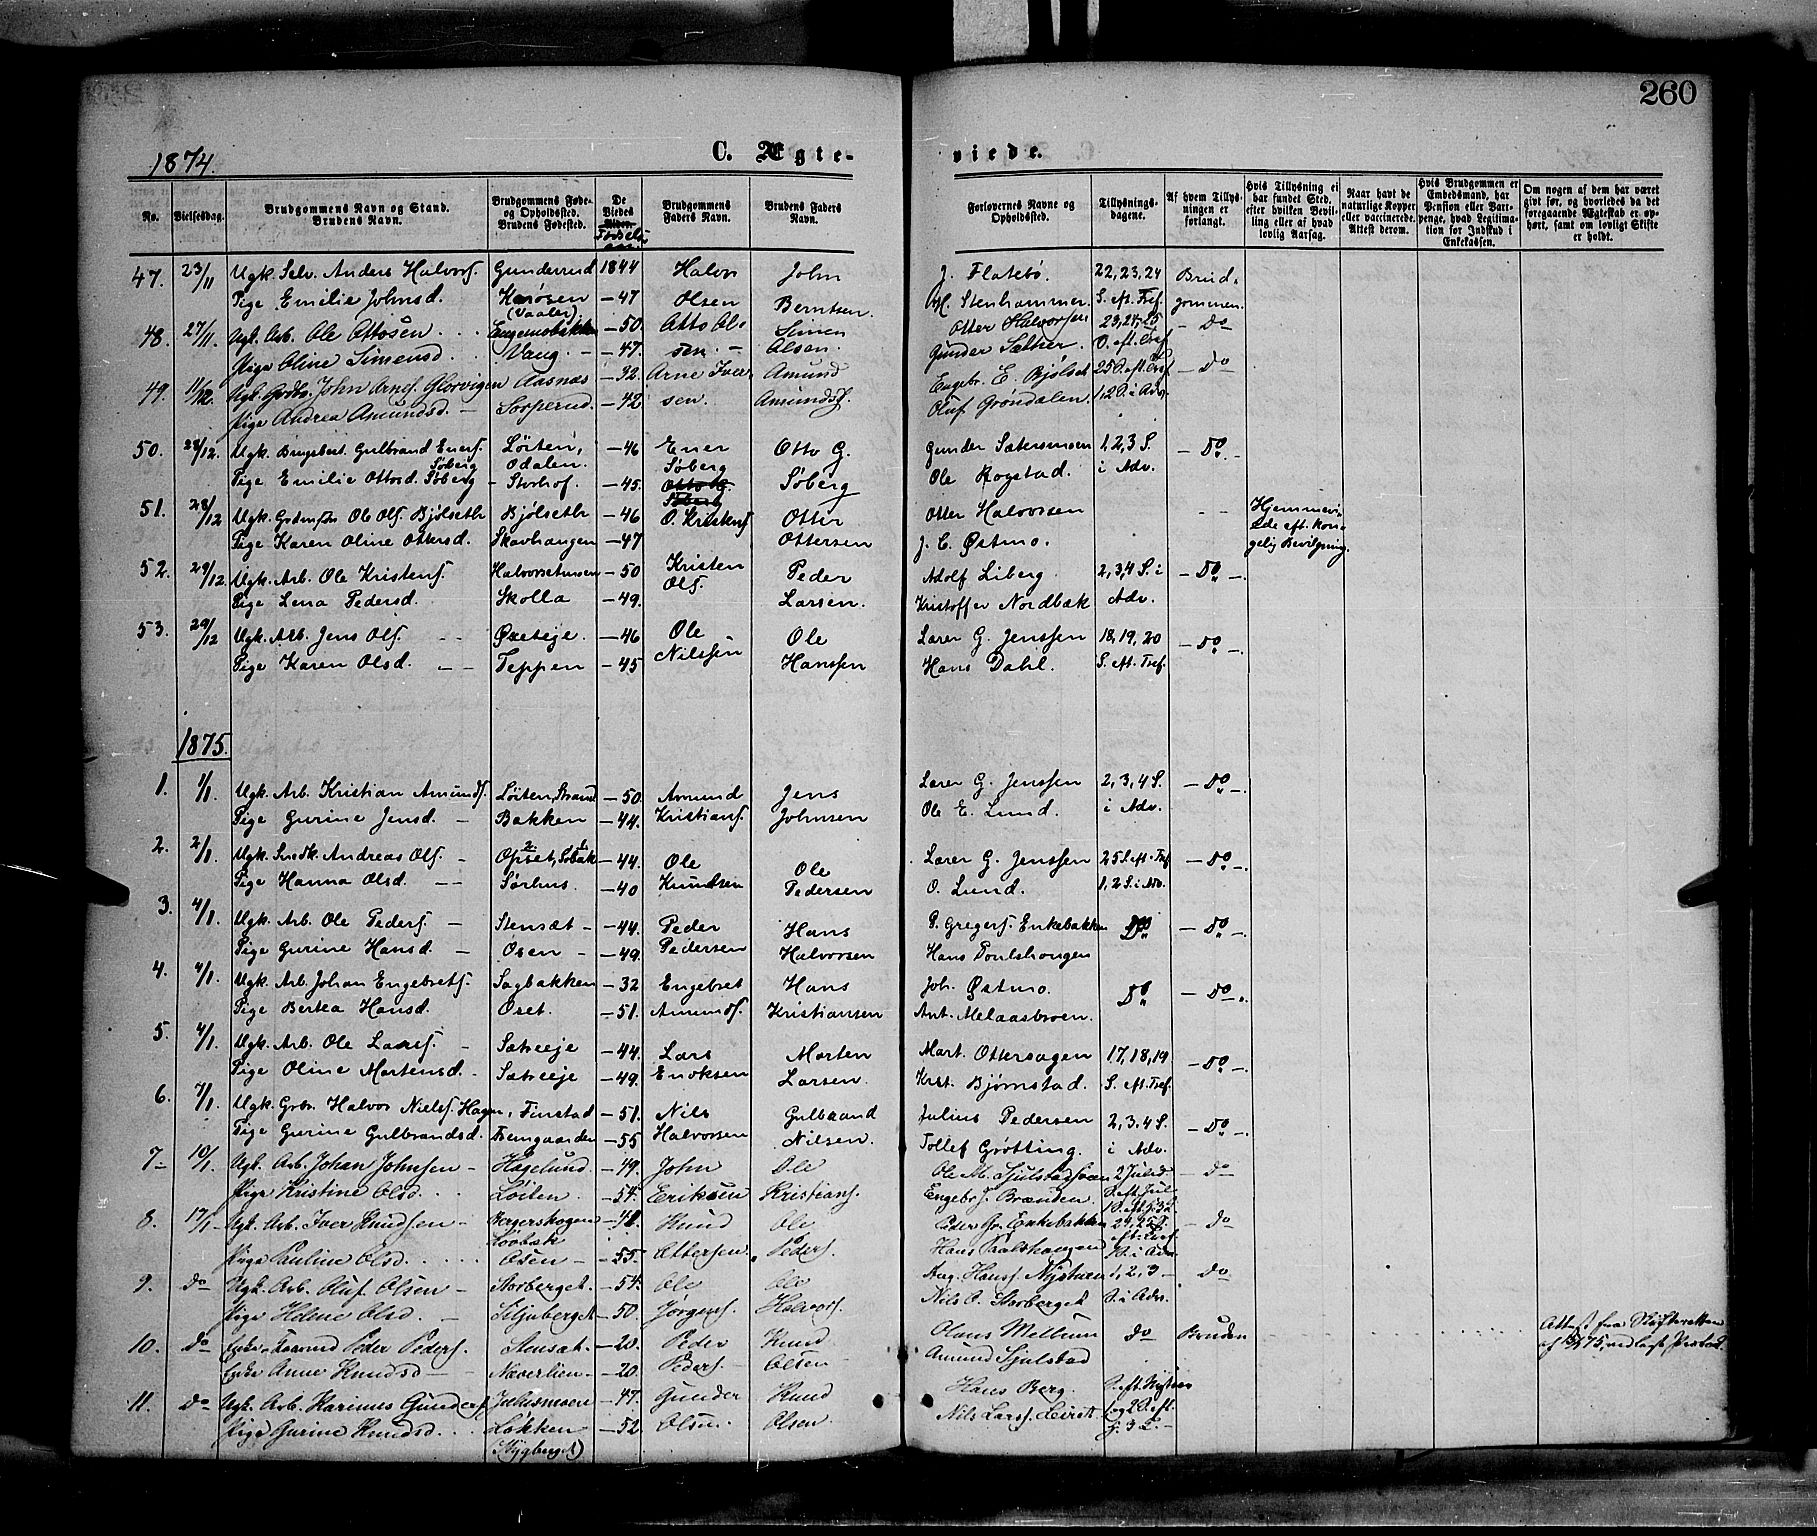 260
1874.
C. Ægte-
viede.
No.
Vielsesdag.
Brudgommens Navn og Stand.
Brudens Navn.
Brudgommens Føde-
og Opholdsted.
Brudens Fødested.
De
Viedes
Alder.
Fødselsaar
Brudgommens
Faders Navn.
Brudens Faders
Navn.
Forlovernes Navne og
Opholdsted.
Tillysnings-
dagene.
Af hvem Tillys-
ningen er
forlangt.
Hvis Tillysning ei
har fundet Sted,
efter hvilken Bevil-
ling eller af hvad
lovlig Aarsag.
Naar havt de
naturlige Kopper
eller vaccinerede.
Attest derom.
Hvis Brudgommen er
Embedsmand, har
Pension eller Vart-
penge, hvad Legitima-
tion for Indskud i
Enkekassen.
Om nogen af dem har været
givt før, og hvorledes da det
foregaaende Ægteskab er op-
hørt, samt om lovligt Skifte
er holdt.
47. 23/11 Ugk. Selv. Anders Halvors. Gunderud 1844 Halvor John J. Flatebø. 22, 23, 24 Brud-
Pige Emilie Johnsd. Kmøsen (Vaaler) – 47 Olsen Berntsen. M. Stenhammer. S. eft. Tref. gommen.
48. 27/11 Ugk. Arb. Ole Ottosen Engemobakken – 50. Otto Ol- Simen Otter Halvorsen 23, 24, 25 – Do
Pige Oline Simensd. Vang. – 47. sen. – Olsen. Gunder Sæther. S. eft. Tref.
49. 11/12 Ugk. Grdbr. John Arnes. Glorvigen Aasnæs – 32. Arne Iver- Amund Engebr. E. Bjølset 25 S. eft. Tref – Do
Pige Andrea Amundsd. – Sorperud. – 42 sen. Amundss. Oluf Grøndalen. 1, 2 S. i Adv.
50. 28/12. Ugk. Gulbrand Eners. Søberg Løiten, Odalen. – 46 Ener Søberg Otto G. Gunder Sætersmoen 1, 2, 3 S. – Do
Pige Emilie Ottosd. Søberg – Storhof. – 45. Otto G. Søberg Søberg Ole Rogstad. i Adv.
51. 28/12 Ugk. Grdmsøn Ole Ols. Bjølsethr Bjølsethr – 46 O. Kristens. Otter Otter Halvorsen – – Hjemmevi-
Pige Karen Oline Ottersd. Skavhaugen – 47 Ottersen J. C. Østmo. ede eft. kon-
gelig Bevilgning.
52. 29/12 Ugk. Arb. Ole Kristens. Halvorsetunsen – 50 Kristen Ols. Peder Adolf Liberg. 2, 3, 4 S. i – Do –
Pige Lena Pedersd. Skolla – 49. Larsen. Kristoffer Nordbæk Adv.
53. 29/12 Ugk. Arb. Jens Ols. – Øxeteje. – 46 Ole Ole Lærer G. Jenssen 18, 19, 20 – Do –
Pige Karen Olsd. – – Teppen – 45 Nilssen Hanssen Hans Dahl. S. eft. Tref.
1875.
1. 1/1 Ugk. Arb. Kristian Amunds. Løiten, Strand – 50. Amund Jens Lærer G. Jenssen 2, 3, 4 S. – Do –
Pige Gurine Jensd. – Bakken – 44. Kristians. Johnsen Ole E. Lund. i Adv.
2. 2/1 Ugk. Snedk. Andreas Ols. – Opset, Sobak – 44. Ole Ole Lærer G. Jenssen 25 S. eft. Tref – Do –
Pige Hanna Olsd. – – Sørhus. – 40 Knudsen Pedersen O. Lund. 1. 2 S. i Adv.
3. 4/1 Ugk. Arb. Ole Peders. – Stensæt – 44. Peder Hans P. Gregers. Enkebakken Do – Do –
Pige Gurine Hansd. – Osen – 49. Pedersen Halvorsen Hans Poulshougen
4. 4/1 Ugk. Arb. Johan Engebrets. Sagbakken – 32 Engebret Hans Joh. Østmo. Do – Do –
Pige Bertea Hansd. Oset. – 51. Amunds. Kristiansen Ant. Melaasbroen.
5. 4/1. Ugk. Arb. Ole Larss. – Sætreeje – 44. Lars Morten Mort. Ottersagen 17, 18, 19 – Do –
Pige Oline Mortensd. – Sætreeje – 49. Enoksen Larsen. Krist. Bjørnstad. S. eft. Tref.
6. 7/1. Ugk. Grbr. Halvor Niels. Hagen, Finstad – 51. Nils Gulbrand Julius Pedersen 2, 3, 4 S. – Do –
Pige Gurine Gulbrandsd. Fremgaarden – 55 Halvorsen Nilsen. Tollef Grøtting. i Adv.
7 – 10/1 Ugk. Arb. Johan Johnsen – Hagelund. – 49. John Ole Ole M. Sjulstadsveen 2 Juled. – do –
Pige Kristine Olsd. Løiten. – 54. Eriksen Kristians. Engebr. Brænden S. eft. Jul
8. 17/1 – Ugk. Arb. Iver Knudsen – Bergerskogen Løbak – 48. Knud Ole Peder Gr. Enkebakken 24, 25 S. – do
Pige Pauline Olsd. Osen – – 55. Ottersen. Peders. Hans Poalshaugen eft. Tref. S. i Adv.
9. do Ugk. Arb. Oluf Olsen – Storberget. – 54. Ole Ole Aug. Hanss. Nystuen 1, 2, 3 – do
Pige Helene Olsd. – Liljeberget – 50. Jørgens. Halvors. Nils O. Storberget S. i Adv.
10. do Enkem. Peder Peders. Stensæt. – 20. Peder Knud Olaus Mellum do Bruden Attest fra Skifteretten
Enke Anne Knudsd – Næverlien – 20. Peders. – Olsen – Amund Sjulstad
11. do Ugk. Arb. Karinus Gunders. Julusmoen – 47. Gunder Knud Hans Berg.
Pige Gurine Knudsd. Løkken (Nyberget) – 52 Olsen. Olsen Nils Larss.